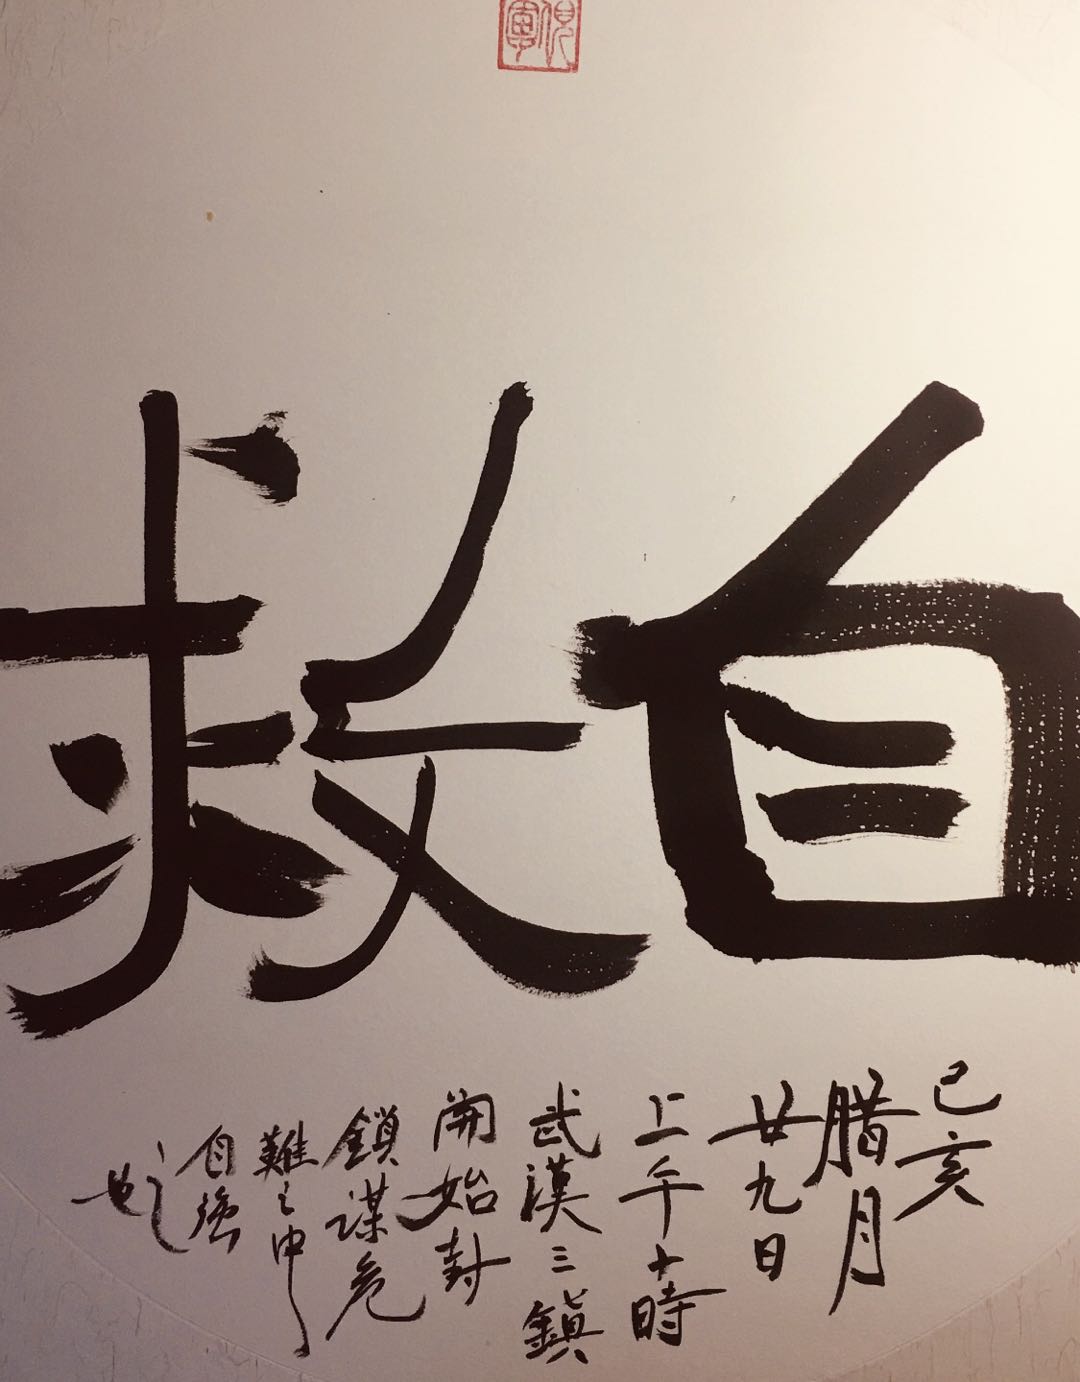 自救
己亥
腊月
廿九日
上午十時
武漢三鎮
開始封
鎖謀危
難之中
自強
之也